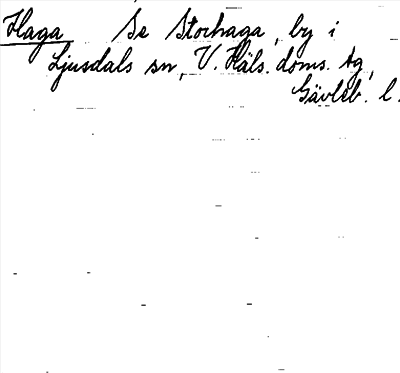 Haga Se Storhaga, by i
Ljusdals sn, V. Häls. doms. tg,
Gävleb. l.